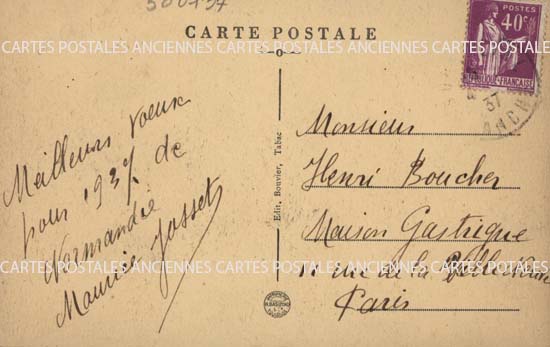 500757
CARTE POSTALE
POSTES
40c
REPUBLIQUE FRANÇAISE
37
CARTES POSTALES ANCIENNES CARTES POSTALES ANCIENNES CARTES POSTALES ANCIENNES
Meilleurs voeux
pour 1937 de
Normandie
Maurice Josset
Edit. Bouvier, Tabac
Monsieur
Henri Boucher
Maison Gastrique
11 rue de la
Paris
CARTES POSTALES ANCIENNES CARTES POSTALES ANCIENNES CARTES POSTALES ANCIENNES